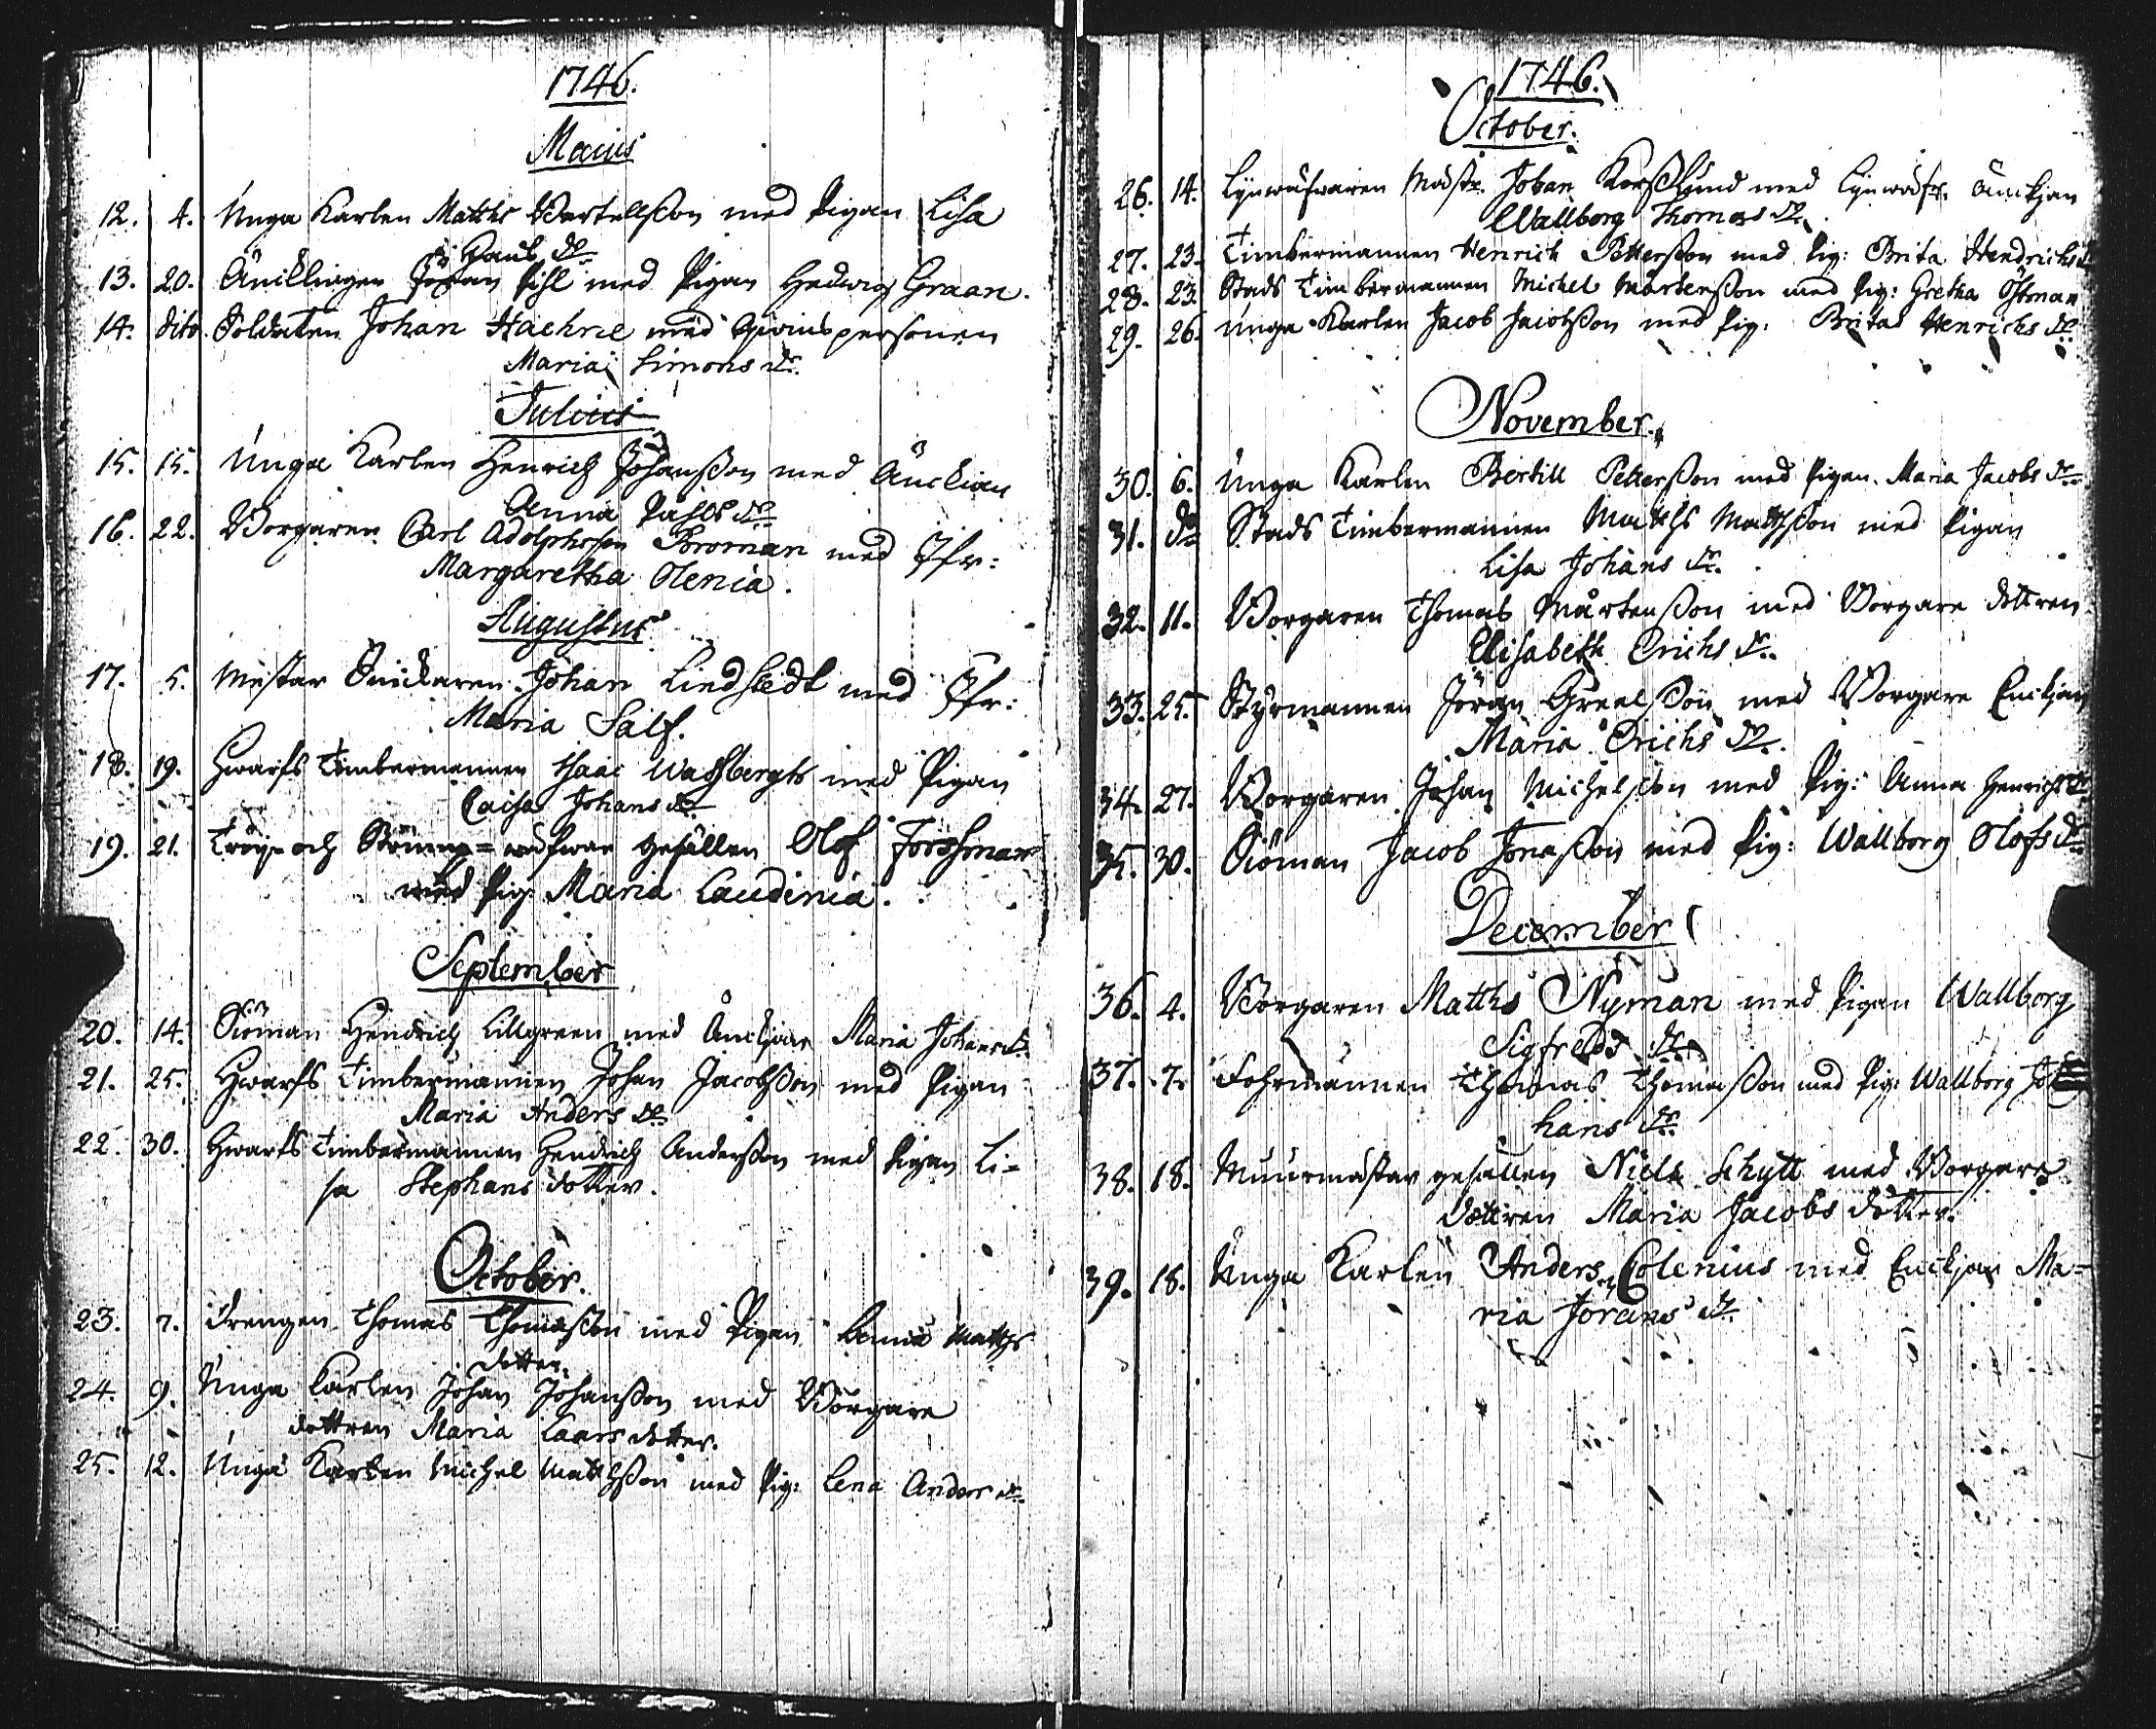 1746.
Maius
12. 4. Unga Karlen Matths Bertellsson med Pigan Lisa
Pauls dr
13. 20. Änklingen Johan Pihl med Pigan Hedwig Graan.
14. dito. Soldaten Johan Haehrie med Qwinspersonen
Maria Simons dr.
Julius
15. 15. Unga Karlen Henrich Johansson med Änckian
Anna Påhls dr
16. 22. Borgaren Carl Adolphsson Broman med Jfr:
Margaretha Olenia.
Augustus
17. 5. Mestar Snickaren Johan Lindstedt med Jfr:
Maria Salf.
18. 19. Hwarfs Timbermannen Isaac Wassbergh med Pigan
Caisa Johans dr
19. 21. Tröije och Strumpwäfware gesällen Olof Forssman
med Pig: Maria Laudinia.
September
20. 14. Siöman Hendrich Lillgreen med Änckjan Maria Johans dr.
21. 25. Hwarfs Timbermannen Johan Jacobsson med Pigan
Maria Anders dr
22. 30. Hwarfs Timbermannen Hendrich Andersson med Pigan Li=
sa Stephans dotter.
October.
23. 7. Drengen Thomas Thomasson med Pigan Matths
dotter.
24. 9. Unga Karlen Johan Johansson med Borgare
dottren Maria Lars dotter.
25. 12. Unga Karlen Michel Matthsson med Pig: Lena Anders dr.
1746.
October.
26. 14. Lijnwäfwaren Mäst: Johan Korsslund med Lijnwäfr. änckjan
Wallborg Thomas dr.
27. 23. Timbermannen Henrich Pettersson med Pig: Brita Hendrichs dr
28. 23. Stads Timbermannen Michel Mårtensson med Pig: Gretha Östman
29. 26. Unga Karlen Jacob Jacobsson med Pig: Brita Henrichs dr
November.
30. 6. Unga Karlen Bertill Pettersson med Pigan Maria Jacobs dr
31. do Stads Timbermannen Matths Matthsson med Pigan
Lisa Johans dr.
32. 11. Borgaren Thomas Mårtensson med Borgare dottren
Elisabeth Erichs dr.
33. 25. Styrmannen Jöran Greelsson med Borgare Enckjan
Maria Erichs dr.
34. 27. Borgaren Johan Michelsson med Pig: Anna Henrichs dr
35. 30. Siöman Jacob Jonasson med Pig: Wallborg Olofs dr
December
36. 4. Borgaren Matths Nyman med Pigan Wallborg
Sigfreds dr
37. 7. Fohrmannen Thomas Thomasson med Pig: Wallborg Jo
hans dr
38. 18. Muurmästar gesällen Niels Schytt med Borgare
dottren Maria Jacobs dotter.
39. 18. Unga Karlen Anders Colenius med Enckjan Ma=
ria Jörans dr